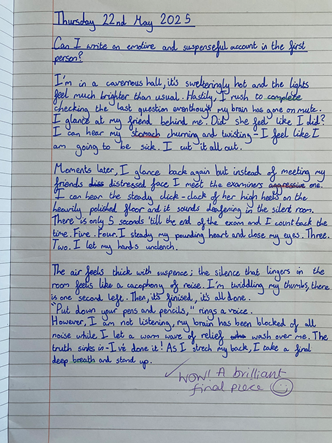 Thursday 22nd May 2025
Can I write an emotive and suspenseful account in the first
person?
I'm in a cavernous hall, it's swelteringly hot and the lights
feel much brighter than usual. Hastily, I rush to complete
checking the last question eventhough my brain has gone on mute.
I glance at my friend behind me. Did she feel like I did?
I can hear my stomach churning and twisting - I feel like I
am going to be sick. I cut it all out.
Moments later, I glance back again but instead of meeting my
friends distressed face I meet the examiners aggressive one.
I can hear the steady click-clack of her high heels on the
heavily polished floor and it sounds deafening in the silent room.
There is only 5 seconds till the end of the exam and I count back the
time. Five. Four. I steady my pounding heart and close my eyes. Three.
Two. I let my hands unclench.
The air feels thick with suspense; the silence that lingers in the
room feels like a cacophony of noise. I'm twiddling my thumbs, there
is one second left. Then, it's finised, it's all done.
"Put down your pens and pencils," rings a voice.
However, I am not listening, my brain has been blocked of all
noise while I let a warm wave of relief wash over me. The
truth sinks in - I've done it! As I strech my back, I take a final
deep breath and stand up.
✓ WOW! A brilliant
final piece ☺